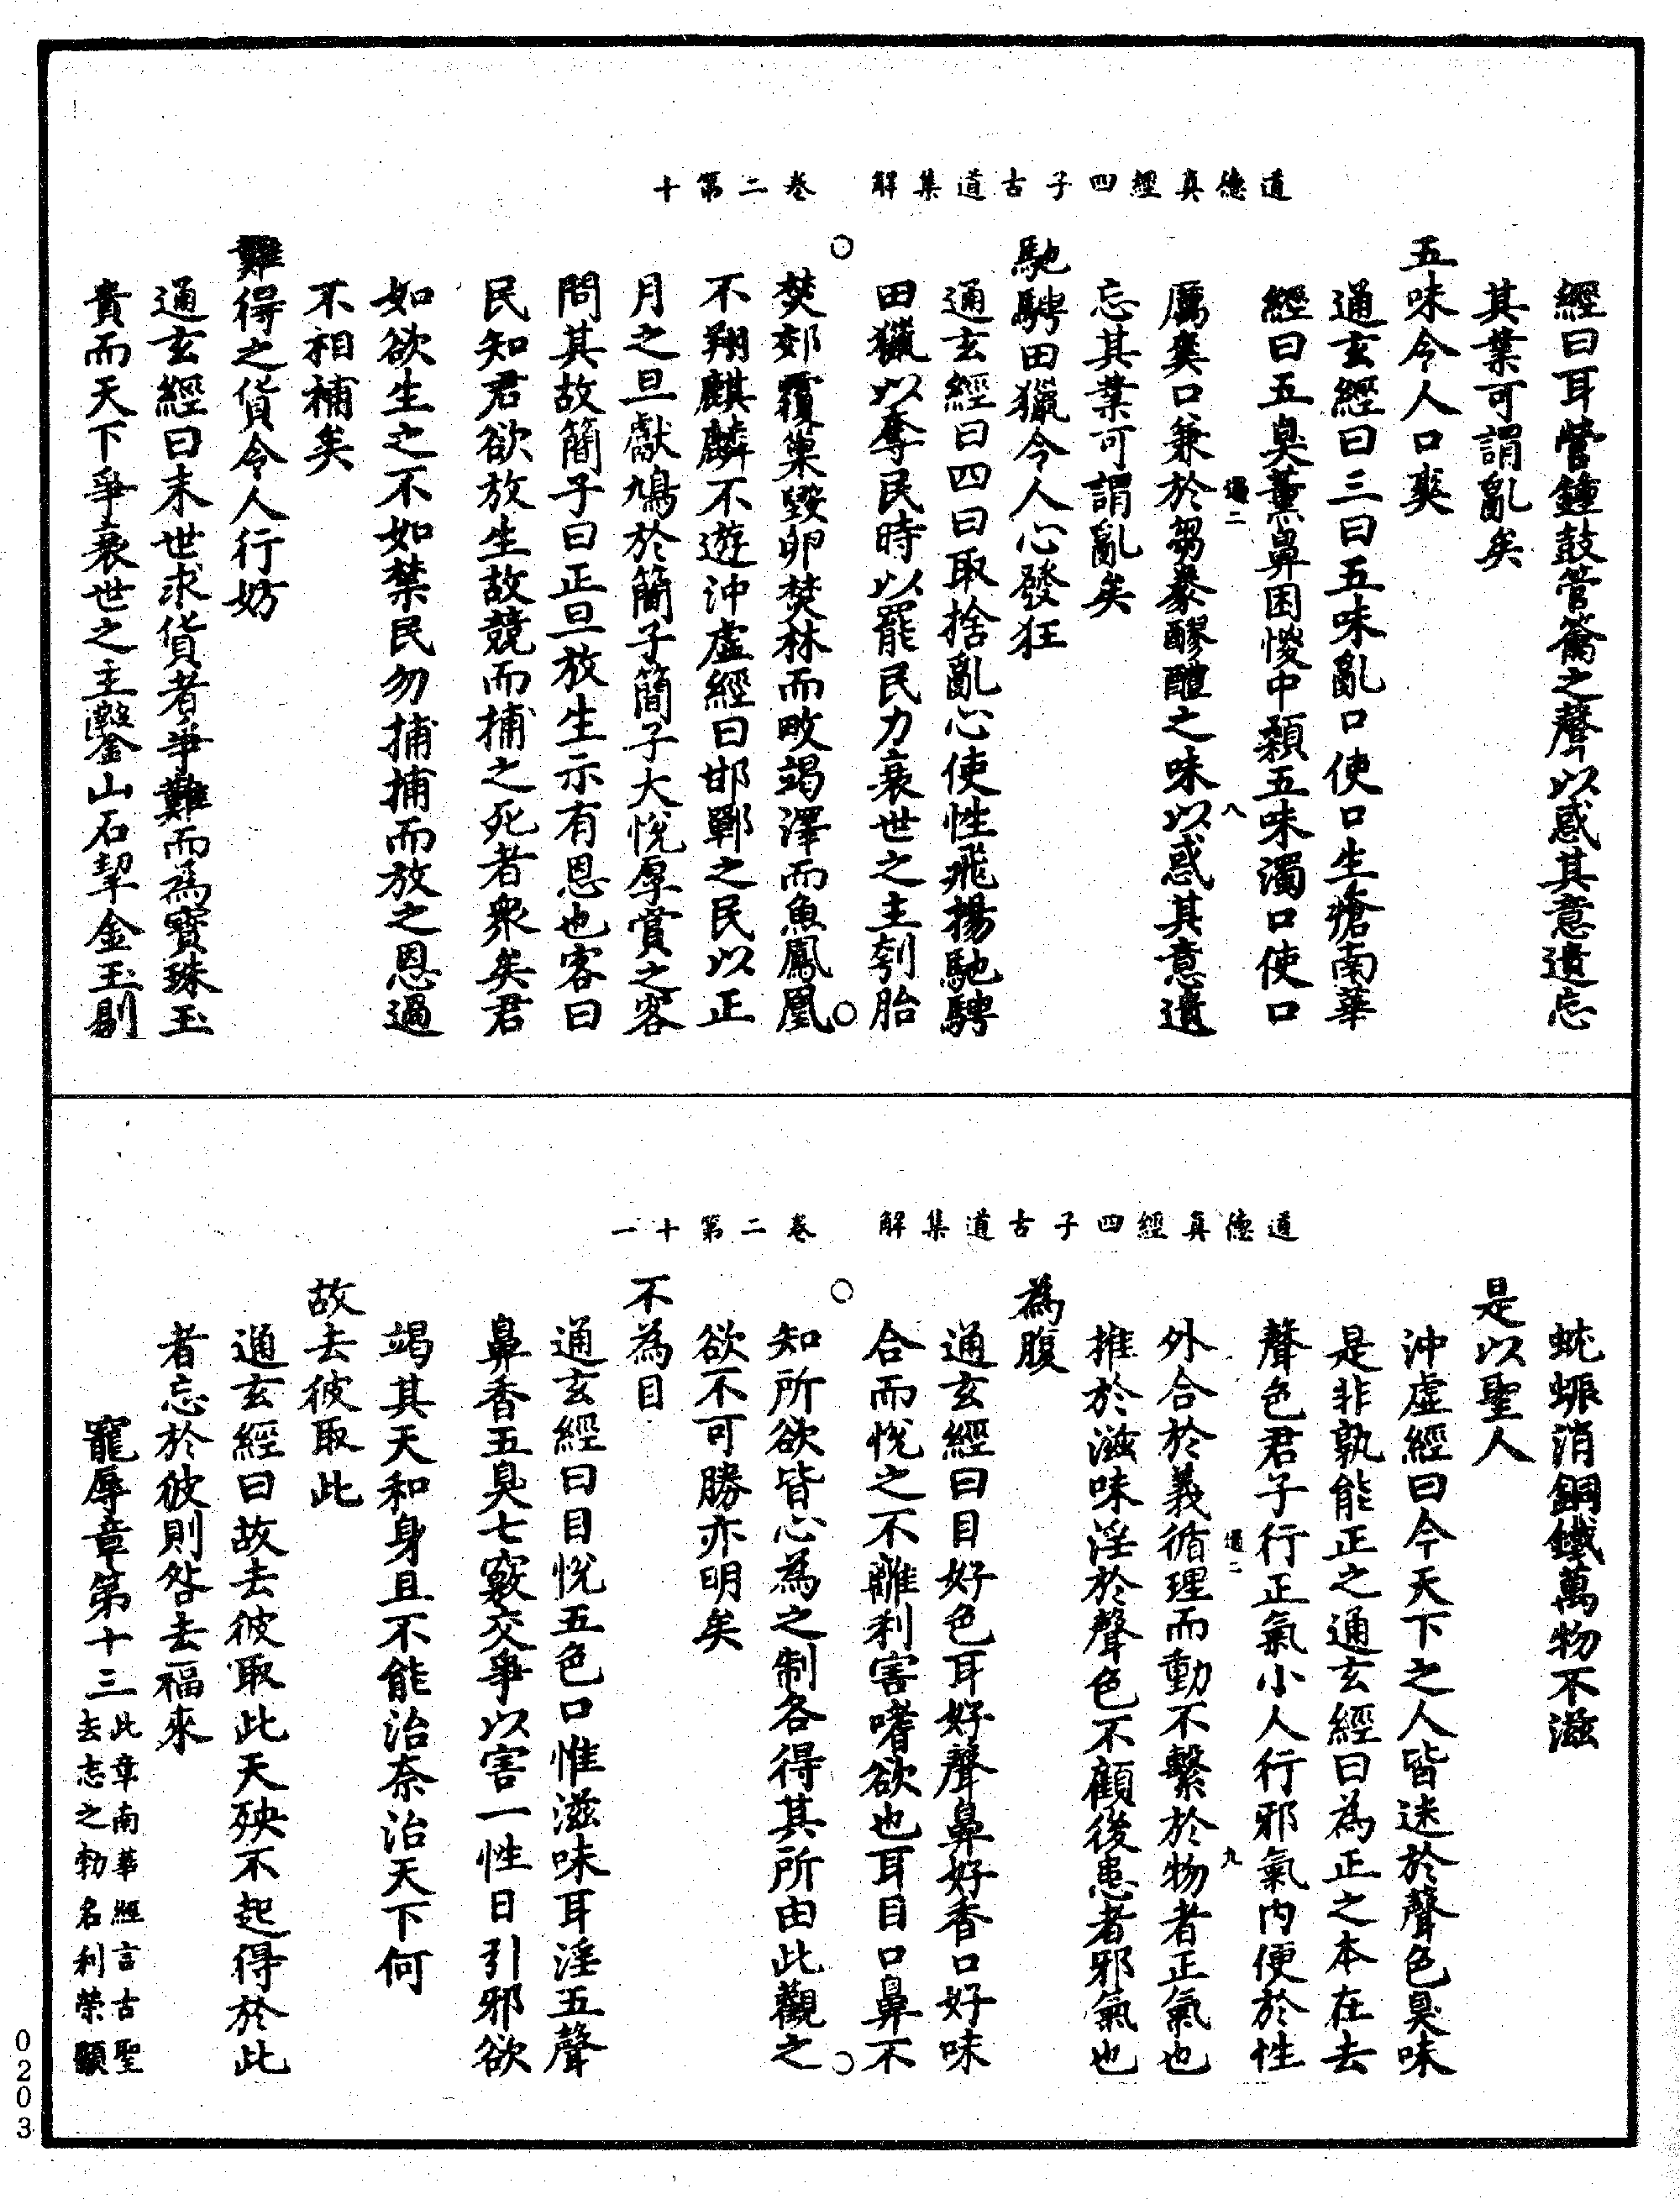 道德真經四子古道集解　卷二第十
經曰耳營鐘鼓管籥之聲以惑其意遺忘
其業可謂亂矣
五味令人口爽
通玄經曰三曰五味亂口使口生瘡南華
經曰五臭薰鼻困惾中顙五味濁口使口
厲爽口兼於芻豢醪醴之味以惑其意遺
忘其業可謂亂矣
馳騁田獵令人心發狂
通玄經曰四曰取捨亂心使性飛揚馳騁
田獵以奪民時以罷民力衰世之主刳胎
焚郊覆巢毀卵焚林而畋竭澤而魚鳳凰
不翔麒麟不遊沖虛經曰邯鄲之民以正
月之旦獻鳩於簡子簡子大悅厚賞之客
問其故簡子曰正旦放生示有恩也客曰
民知君欲放生故競而捕之死者衆矣君
如欲生之不如禁民勿捕捕而放之恩過
不相補矣
難得之貨令人行妨
通玄經曰末世求貨者爭難而為寶珠玉
貴而天下爭衰世之主鑿山石挈金玉剔
過二
八
道德真經四子古道集解　卷二第十一
蚌蜄消銅鐵萬物不滋
是以聖人
沖虛經曰今天下之人皆迷於聲色臭味
是非孰能正之通玄經曰為正之本在去
聲色君子行正氣小人行邪氣內便於性
外合於義循理而動不繫於物者正氣也
推於滋味淫於聲色不顧後患者邪氣也
為腹
通玄經曰目好色耳好聲鼻好香口好味
合而悅之不離利害嗜欲也耳目口鼻不
知所欲皆心為之制各得其所由此觀之
欲不可勝亦明矣
不為目
通玄經曰目悅五色口惟滋味耳淫五聲
鼻香五臭七竅交爭以害一性日引邪欲
竭其天和身且不能治奈治天下何
故去彼取此
通玄經曰故去彼取此天殃不起得於此
者忘於彼則咎去福來
寵辱章第十三此章南華經言古聖
去志之勃名利榮顯
過二
九
0203